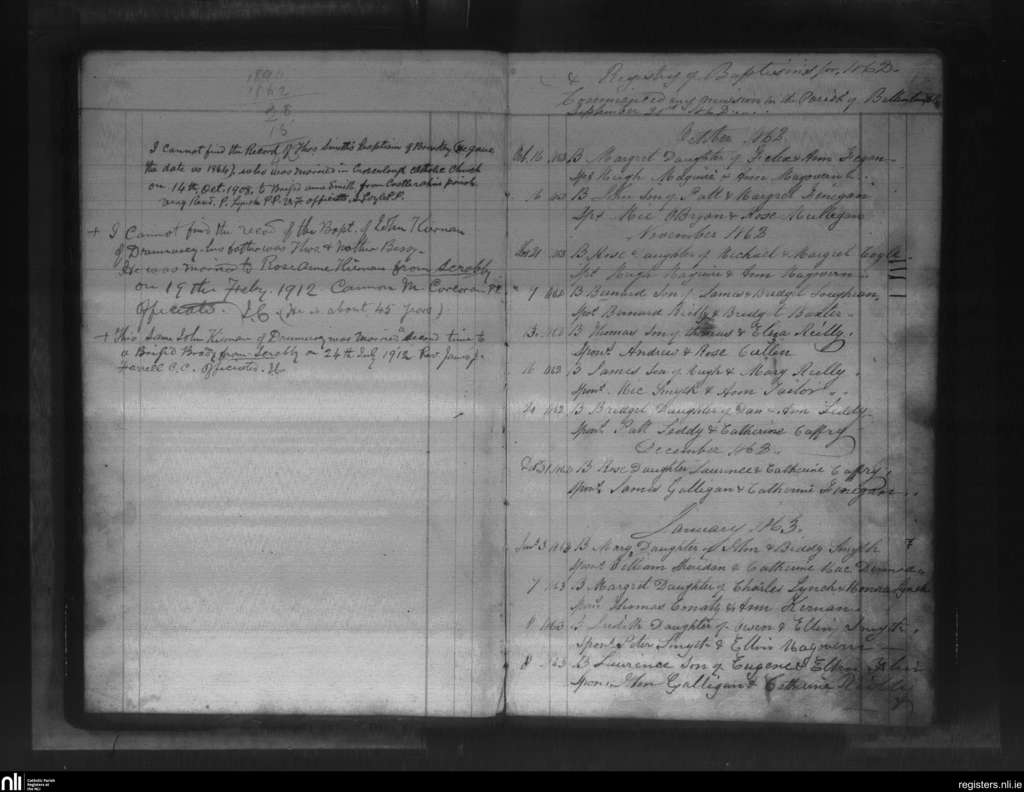 1862
28
15
I cannot find the Record of Thos. Smith's Baptism of (he gave
the date as 1864), who was married in Crosserlough Catholic Church
on 14th Oct. 1908, to Brigid Anne Smith from Castlerahan parish
Very Revd. P. Lynch P.P. V.F. officiated. P.P.
+ I Cannot find the record of the Bapt. of Kiernan
of Drumracey his father was Thos. & Mother Bessy.
He was married to Rose Anne Kiernan from Scrabby
on 19th Feby. 1912 Cannon M. Corcoran P.P.
Officiated. (He is about 45 years)
+ This same John Kiernan of Drumracey was married a second time to
a Brigid Brady from Scrabby on 24th July 1912 Rev. James J.
C.C. Officiated.
& Registry of Baptisms for 1862
Commenced my mission in the Parish of
September 1862
October 1862
Oct. 16 B Margret Daughter of Felix & Ann Fegan
Spt Hugh Maguire & Ann Magovern
16 B John Son of Patt & Margret Fenegan
Spt Mic OBryan & Rose Mulligan
November 1862
B Rose Daughter of Michael & Margret Coyle
Spt Hugh Maguire & Ann Magovern
7 B Bernard Son of James & Bridget
Spt Bernard Reilly & Bridget Baxter
B Thomas Son of Thomas & Eliza Reilly
Spont Andrew & Rose Cullen
16 B James Son of Hugh & Mary Reilly
Spont Mic Smyth & Ann Tailor
B Bridget Daughter of Dan & Ann Leddy
Spont Patt Leddy & Catherine Caffry
December 1862
B Rose Daughter Laurence & Catherine Caffry
Spont James Galligan & Catherine Fenegan
January 1863
Jan. 3 B Mary Daughter of John & Biddy Smyth
Spont William Sheridan & Catherine Mac
7 B Margret Daughter of Charles Lynch & Lynch
Spont Thomas & Ann Kernan
B Judith Daughter of Owen & Ellen Smyth
Spont Peter Smyth & Ellen Magovern
B Laurence Son of Eugene & Ellen
Spon John Galligan & Catherine Reilly
nli Catholic Parish
Registers at
the NLI
registers.nli.ie